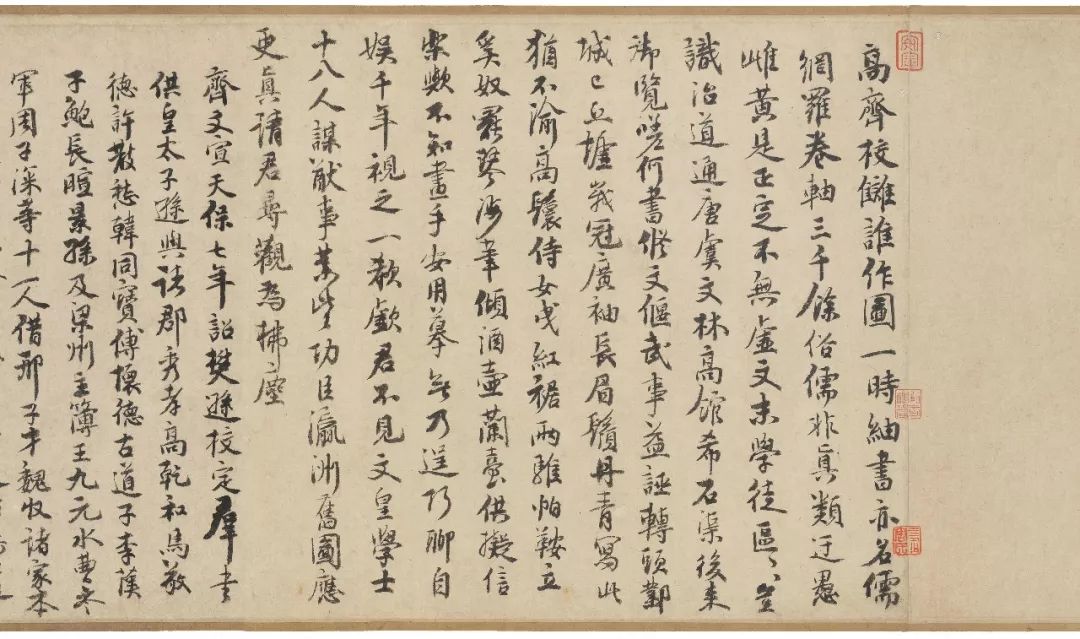 高齊校讎誰作圖一時紬書亦名儒
網羅卷軸三千餘俗儒非真類迂愚
雌黃是正定不無虛文末學徒區〻豈
識治道通唐虞文林高館希石渠後來
御覽嗟何書修文偃武事益誣轉頭鄴
城已丘墟峩冠廣袖長眉鬚丹青寫此
猶不渝高鬟侍女曳紅裾兩騅帕鞍立
奚奴罷琴涉筆傾酒壺蘭臺供擬信
樂歟不知畫手安用摹無乃逞巧聊自
娛千年視之一欷歔君不見文皇學士
十八人謀猷事業皆功臣瀛洲舊圖應
更真請君尋觀為拂塵
齊文宣天保七年詔樊遜校定群書
供皇太子遜與諸郡秀孝高乾和馬敬
德許散愁韓同寶傅懷德古道子李漢
子鮑長暄景孫及梁州主簿王九元水曹參
軍周子深等十一人借邢子才魏收諸家本